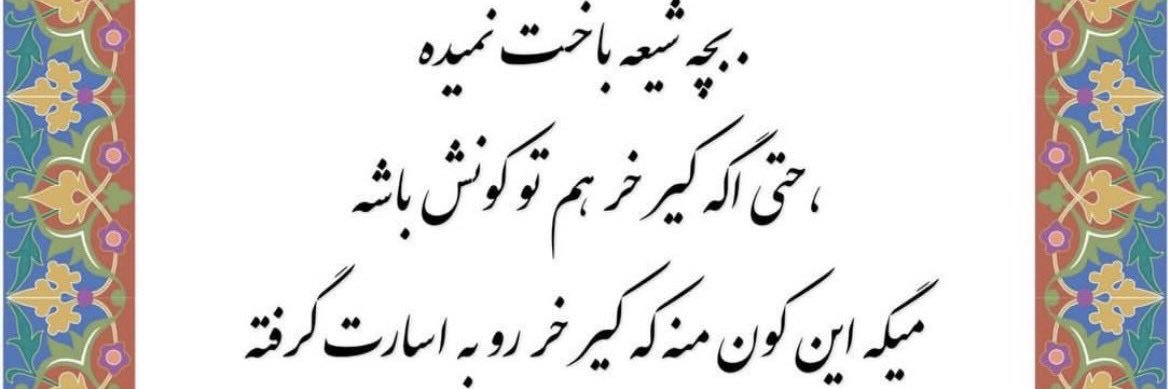 .بچه شیعه باخت نمیده
،حتی اگه کیر خر هم تو کونش باشه
میگه این کون منه که کیر خر رو به اسارت گرفته